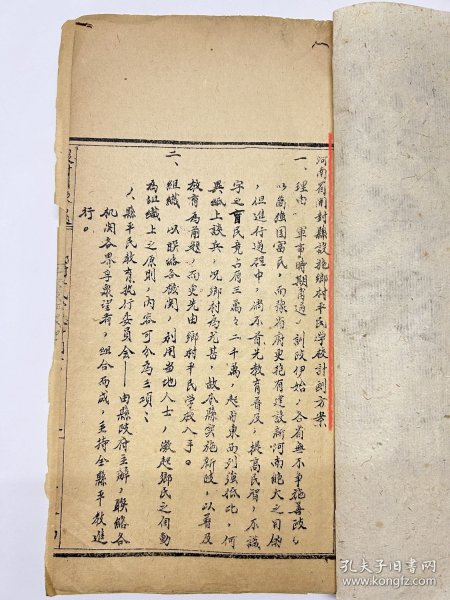 河南省開封縣設施鄉村平民学校計劃方案
一、理由 軍事時期甫過，訓政伊始，各省無不争施善政，
以蘄強国富民，而豫省府更抱有建設新河南絶大之目的
，但進行過程中，倘不首先教育普及，提高民智，不識
字之盲民竟占有三萬二千萬，起身東西列強抵此，何
異紙上談兵，况鄉村為尤甚，故本縣实施新政，以普及
教育為前題，而更先由鄉村平民学校入手。
二、組織 以聯絡各機関，利用当地人士，激起鄉民之自動
為組織上之原則，内容可分為三項：
1、縣平民教育执行委員会——由縣政府主辦，聯絡各
机関各界孚衆望者，組合而成，主持全縣平教進
行。
孔夫子旧书网
book.kongfz.com